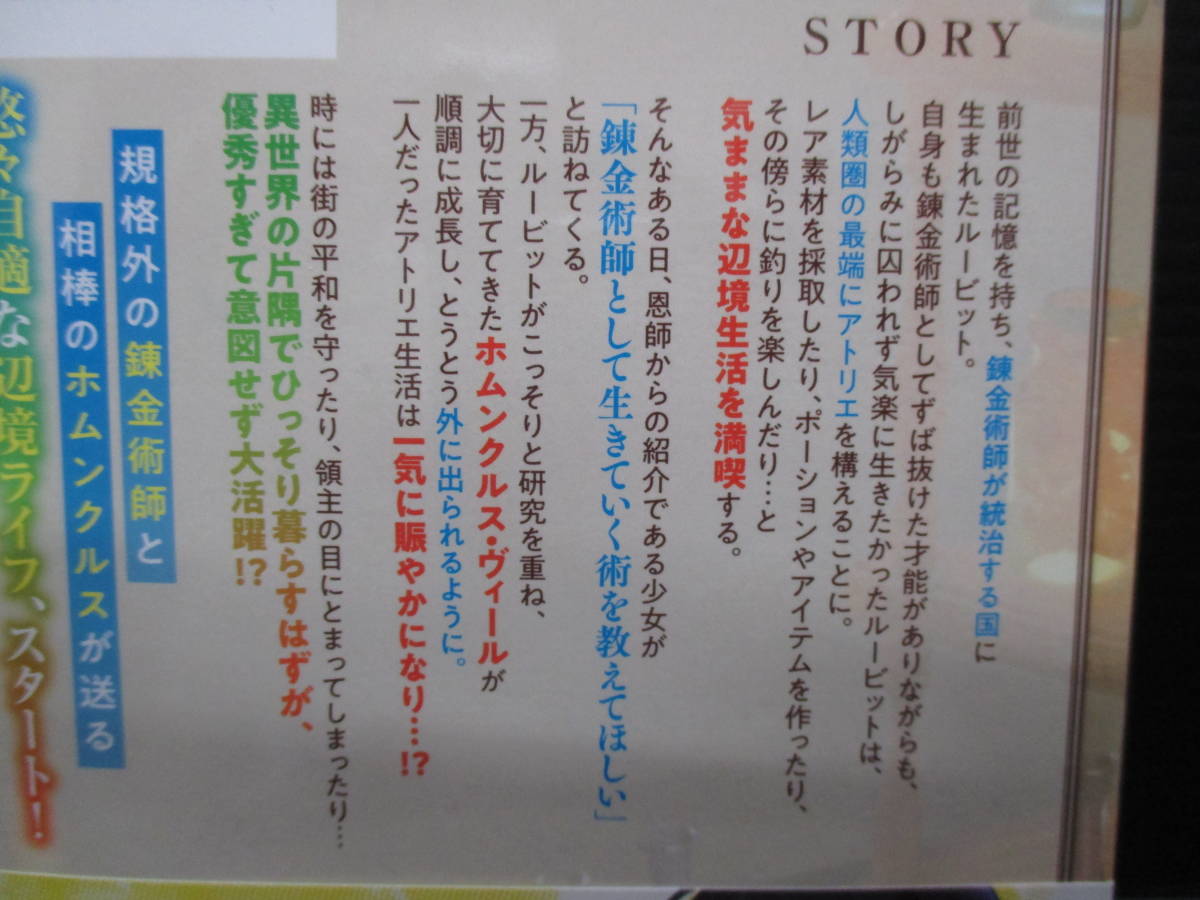 STORY
前世の記憶を持ち、錬金術師が統治する国に
生まれたルービット。
自身も錬金術師としてずば抜けた才能がありながらも、
しがらみに囚われず気楽に生きたかったルービットは、
人類圏の最端にアトリエを構えることに。
レア素材を採取したり、ポーションやアイテムを作ったり、
その傍らに釣りを楽しんだり…と
気ままな辺境生活を満喫する。
そんなある日、恩師からの紹介である少女が
「錬金術師として生きていく術を教えてほしい」
と訪ねてくる。
一方、ルービットがこっそりと研究を重ね、
大切に育ててきたホムンクルス・ヴィールが
順調に成長し、とうとう外に出られるように。
一人だったアトリエ生活は一気に賑やかになり…!?
時には街の平和を守ったり、領主の目にとまってしまったり…
異世界の片隅でひっそり暮らすはずが、
優秀すぎて意図せず大活躍!?
規格外の錬金術師と
相棒のホムンクルスが送る
悠々自適な辺境ライフ、スタート!